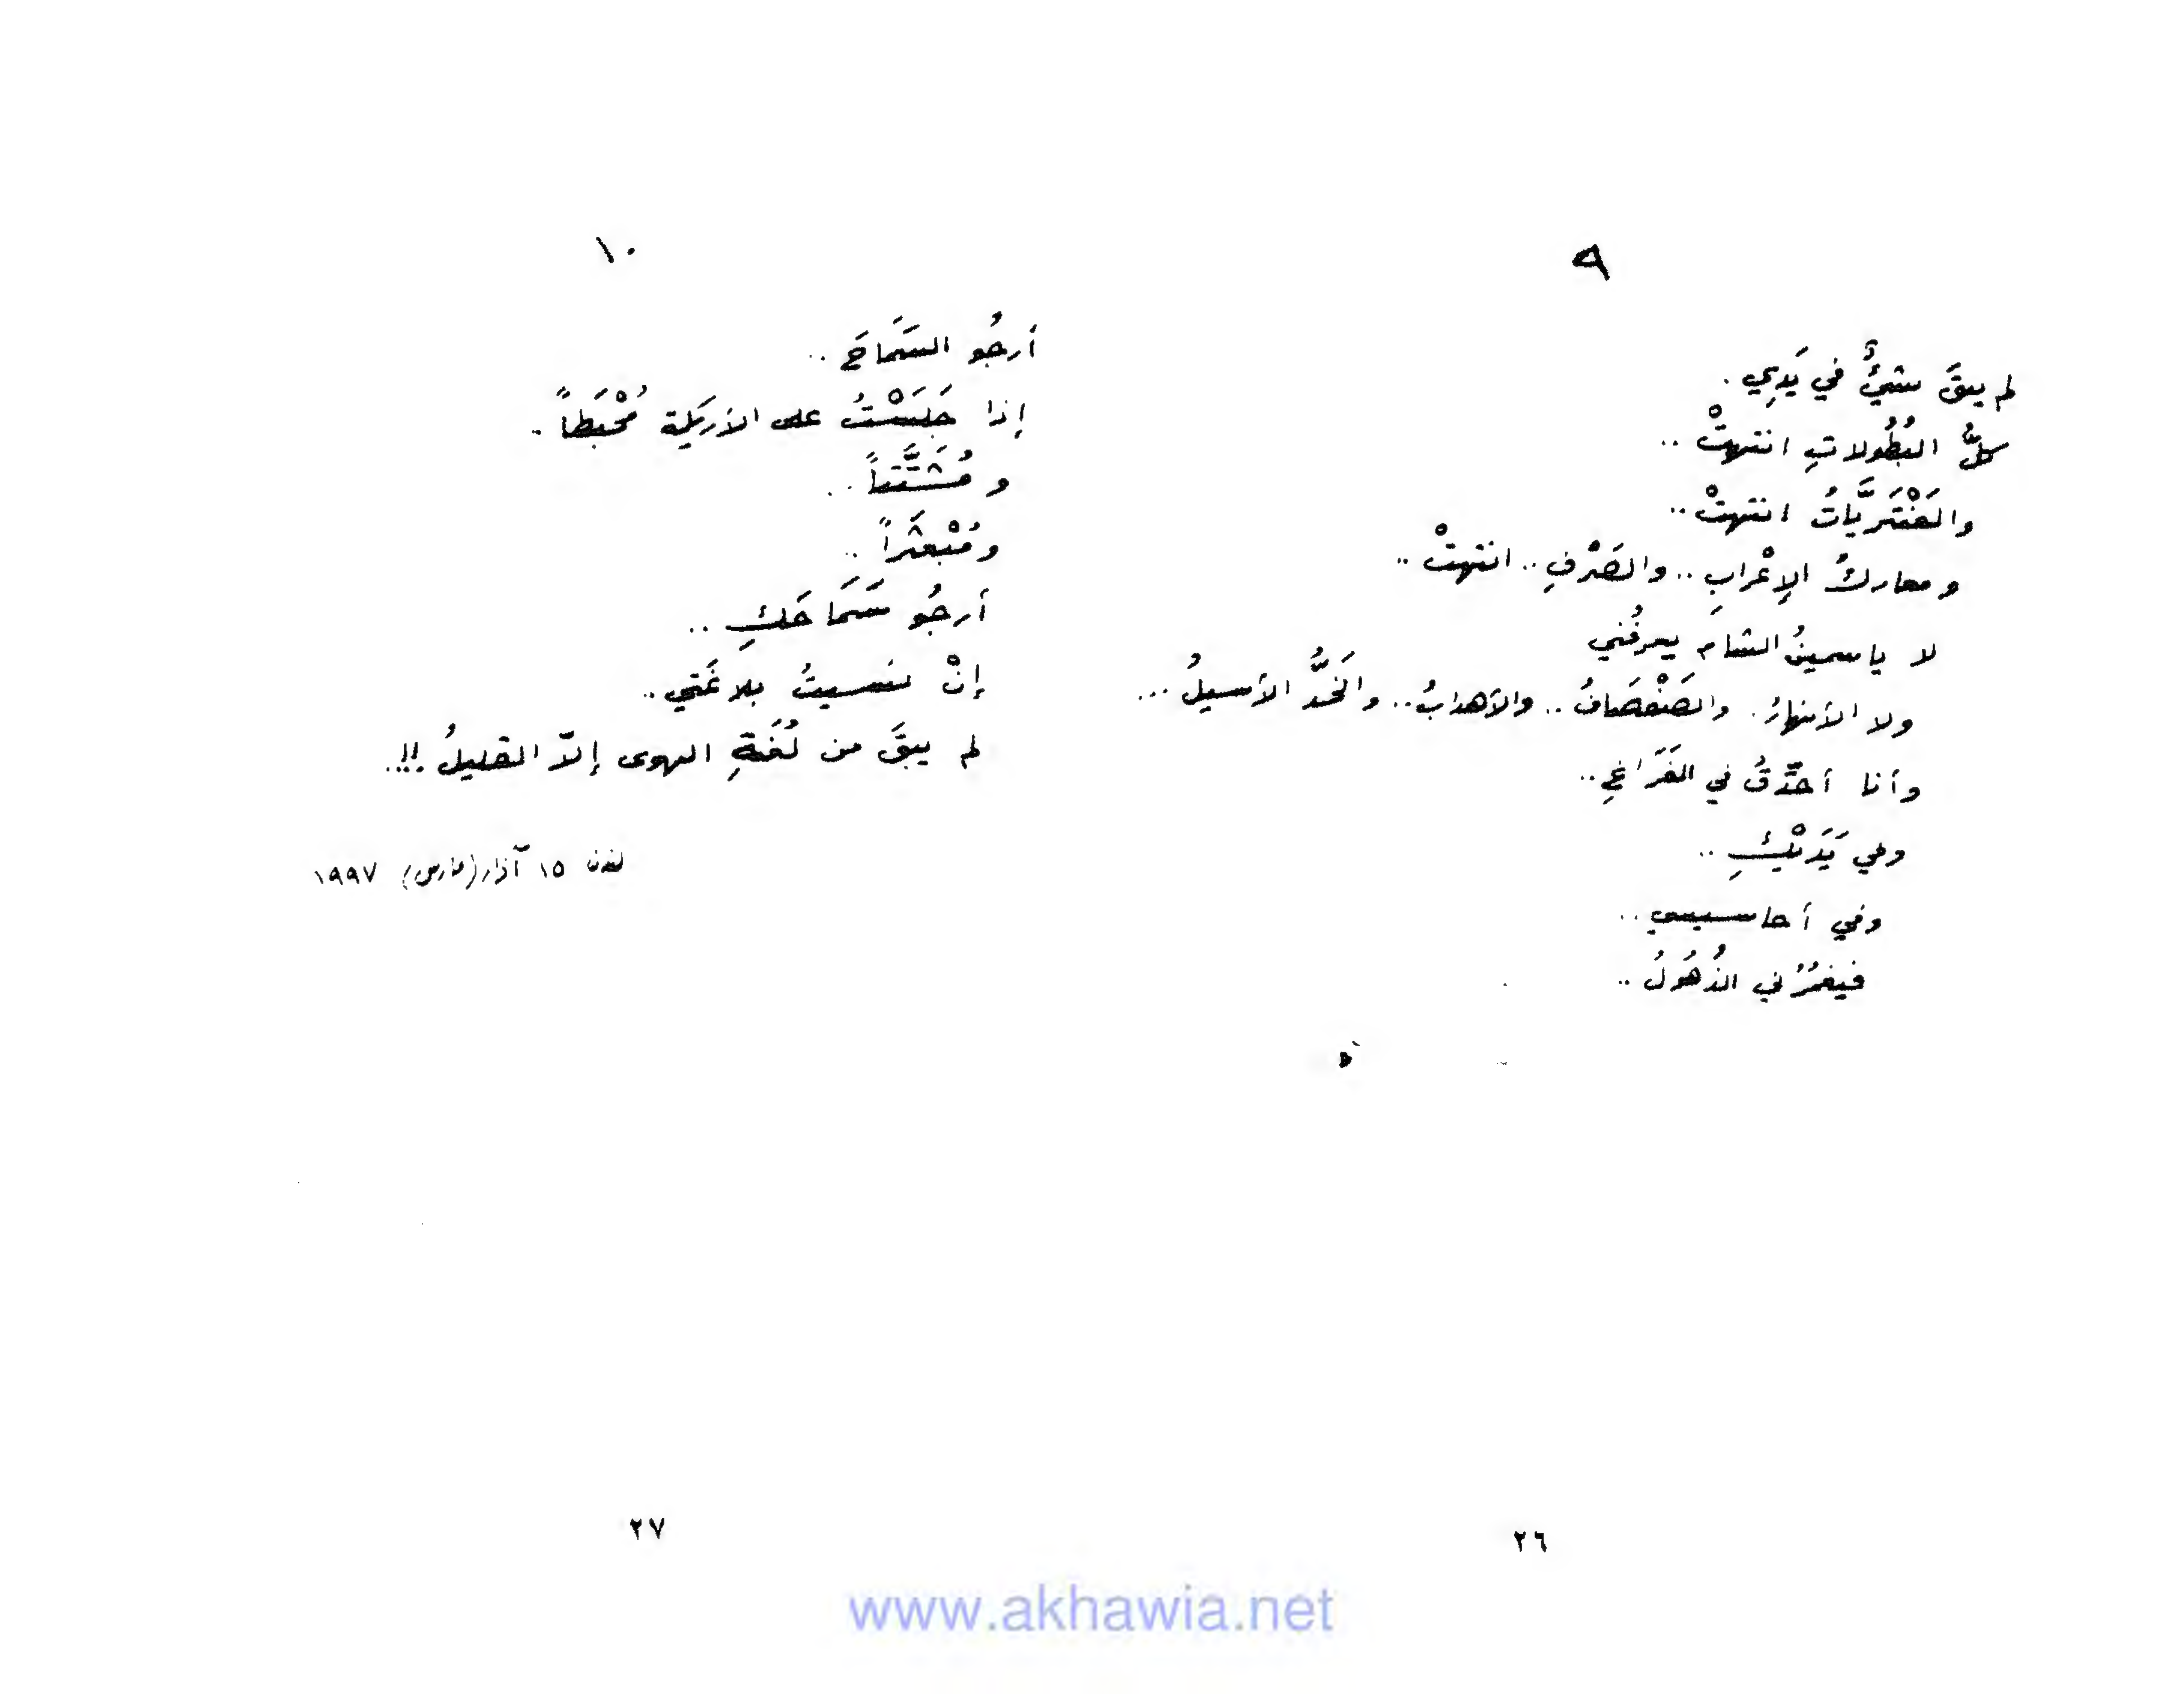 ٩
لم يبقَ شيءٌ في يَدِي .
كلُّ البُطُولاتِ انتهتْ ..
والعَنْتَريَّاتُ انتهتْ ..
ومعاركُ الإعْرابِ .. والصَرْفِ .. انتهتْ ..
لا ياسمينُ الشامَ يعرفُني
ولا الأنهارُ . والصَفْصَافُ .. والأهدابُ .. والخَدُّ الأسيلُ ...
وأنا أحدّقُ في الفَرَاغِ ..
وفي يَدَيْكِ ..
وفي أحاسيسي ..
فيغمُرُني الذُهُولُ ..
٢٦
١٠
أرجُو السَمَاحَ ..
إذا جَلَسْتُ على الأريكة مُحْبَطاً ..
ومُشَتَّتاً ..
ومُبْعثَراً ..
أرجُو سَمَاحَكِ ..
إنْ نسيتُ بلاغَتي ..
لم يبقَ من لُغَةِ الهوى إلاّ القليلُ !!..
لندن ١٥ آذار (مارس) ١٩٩٧
٢٧
www.akhawia.net